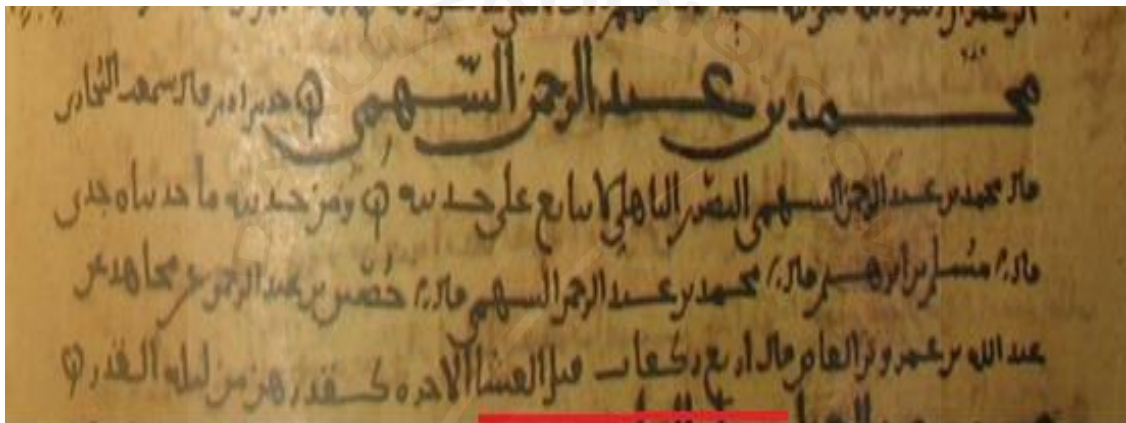 محمد بن عبد الرحمن السّهمي حدثني ادم قال سمعت البخاري
قال محمد بن عبد الرحمن السهمي البصري الباهلي لا يتابع على حديثه ومن حديثه ما حدثناه جدي
قال مسلم بن ابرهيم قال محمد بن عبد الرحمن السهمي قال حصين بن عبد الرحمن عن مجاهد عن
عبد الله بن عمرو بن العاص قال اربع ركعات قبل العشا الاخره كقدرهن من ليله القدر